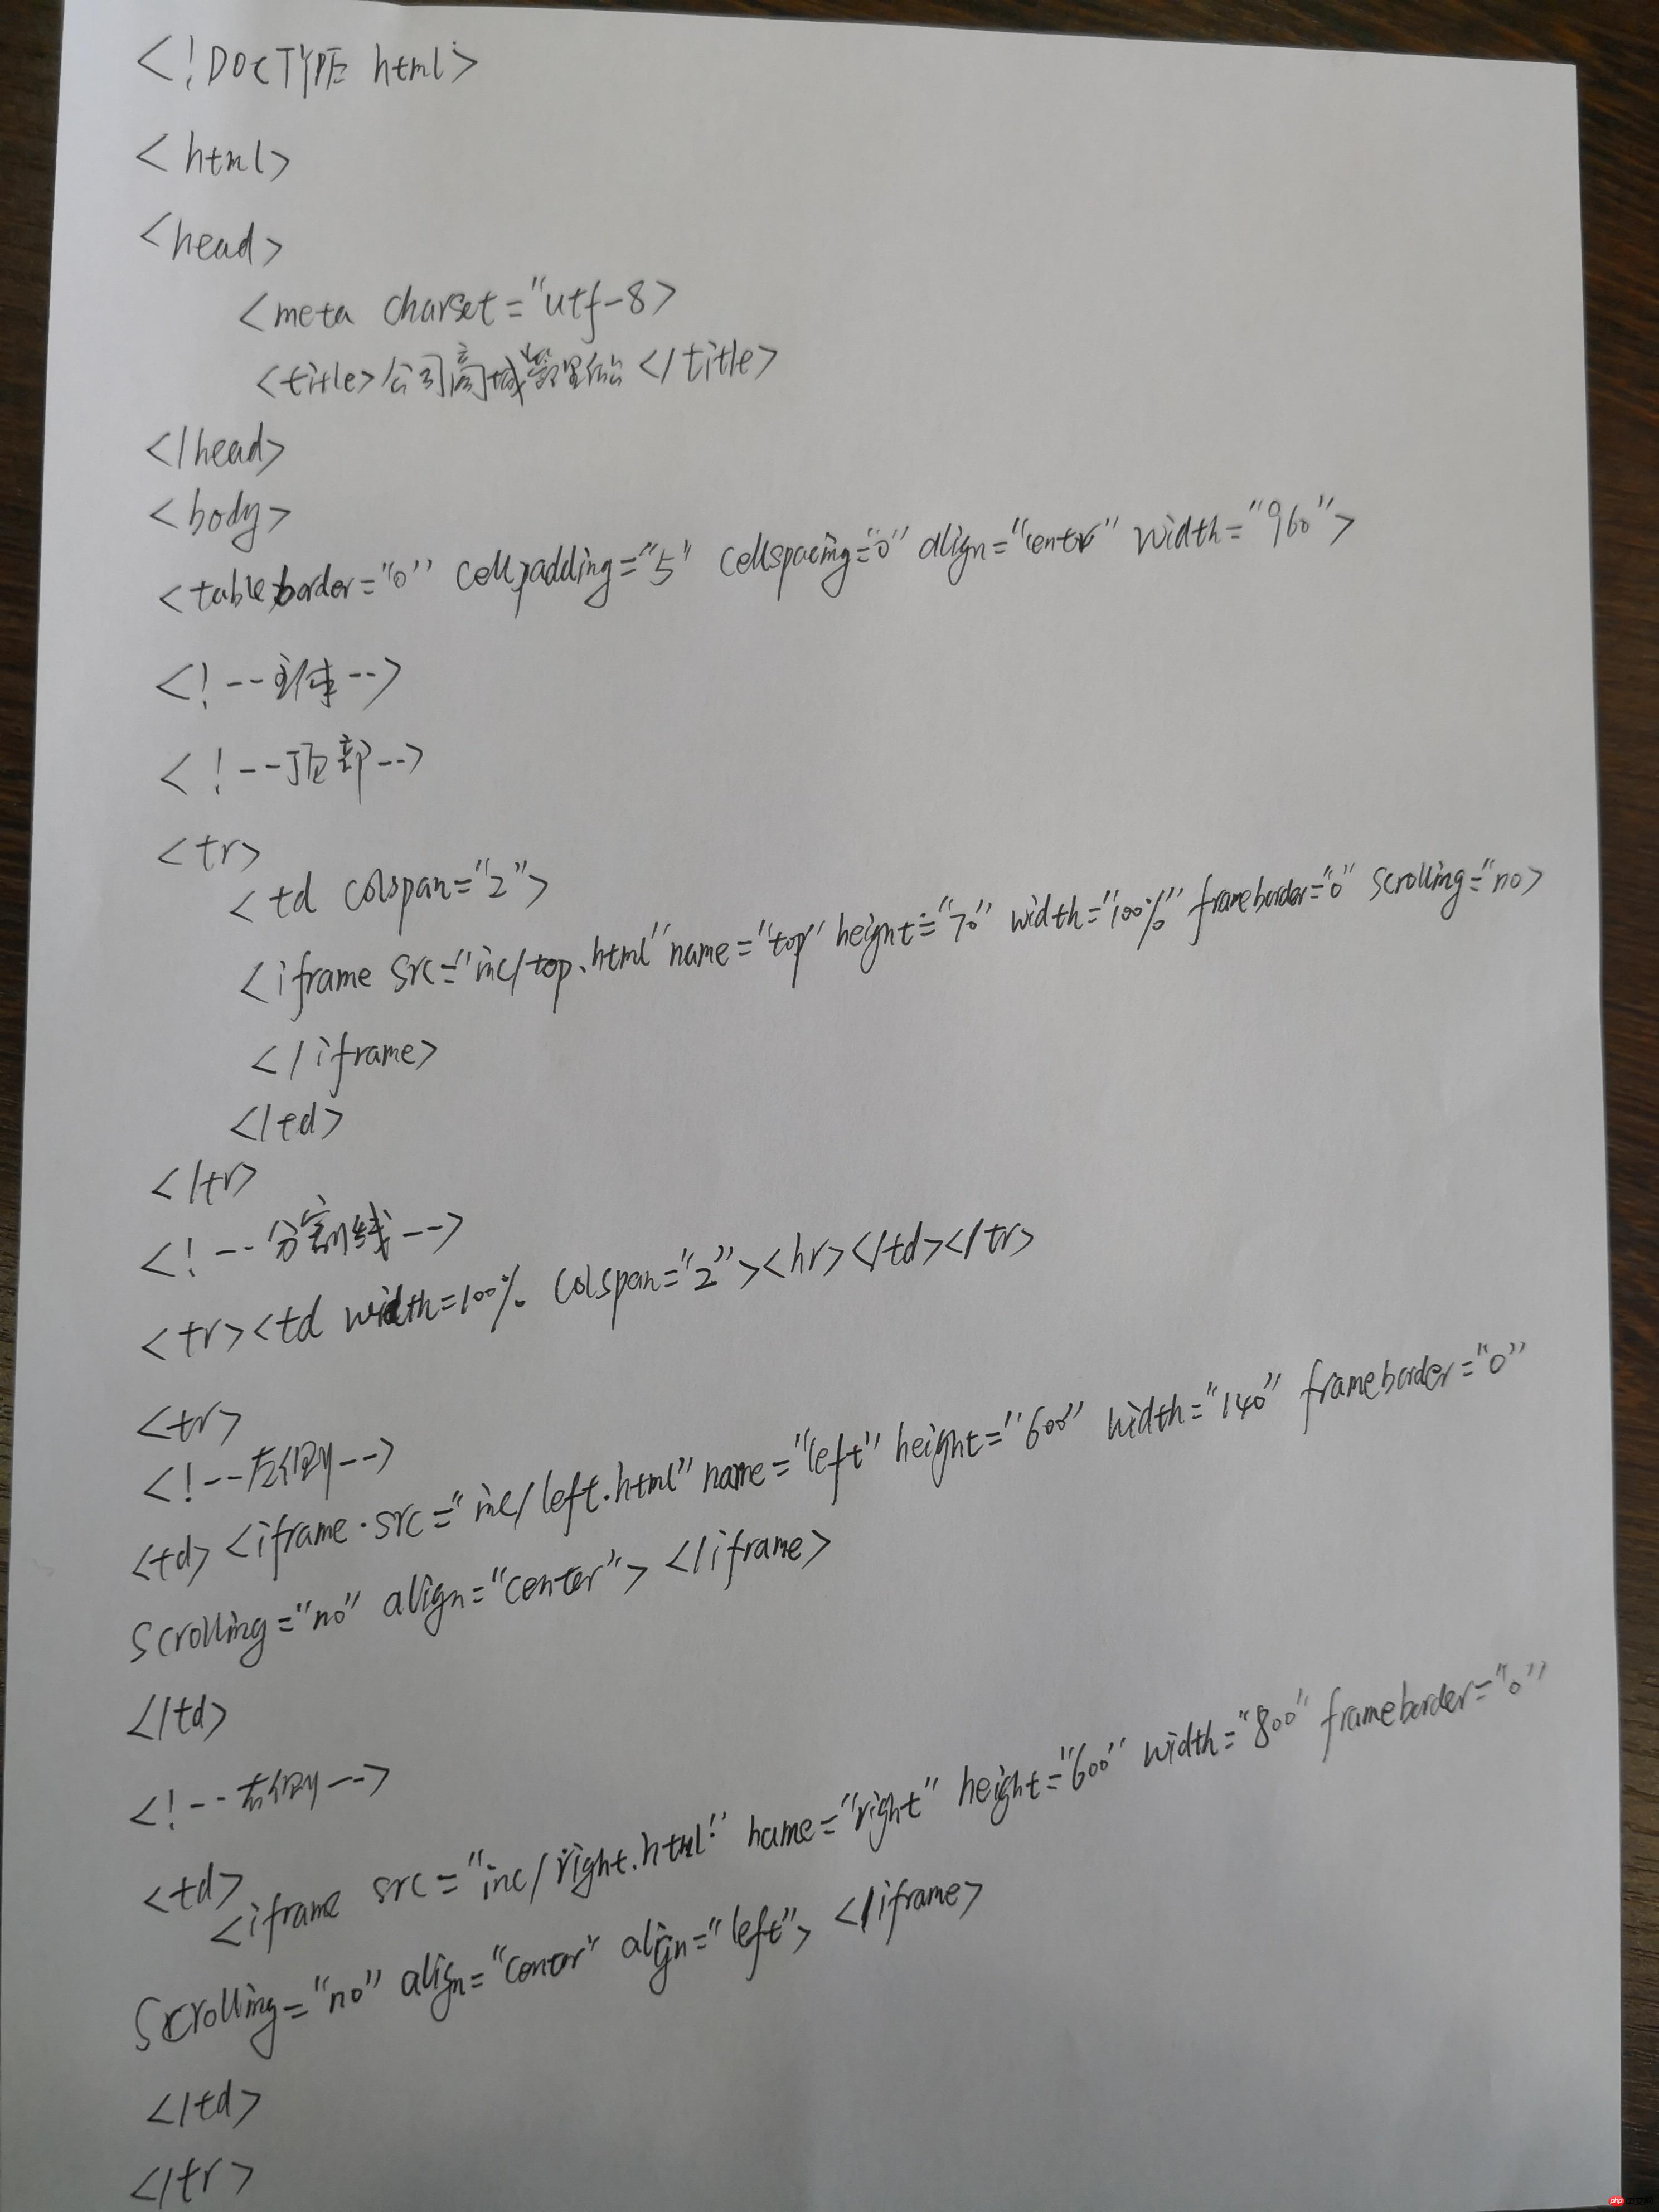 <!DOCTYPE html>
<html>
<head>
<meta charset="utf-8>
<title>公司商城管理后台</title>
</head>
<body>
<table border="0" cellpadding="5" cellspacing="0" align="center" width="960">
<!--主体-->
<!--顶部-->
<tr>
<td colspan="2">
<iframe src="inc/top.html" name="top" height="70" width="100%" frameborder="0" scrolling="no>
</iframe>
</td>
</tr>
<!--分割线-->
<tr><td width=100% colspan="2"><hr></td></tr>
<tr>
<!--左侧-->
<td><iframe src="inc/left.html" name="left" height="600" width="140" frameborder="0"
scrolling="no" align="center"></iframe>
</td>
<!--右侧-->
<td>
<iframe src="inc/right.html" name="right" height="600" width="800" frameborder="0"
scrolling="no" align="center" align="left"></iframe>
</td>
</tr>
php